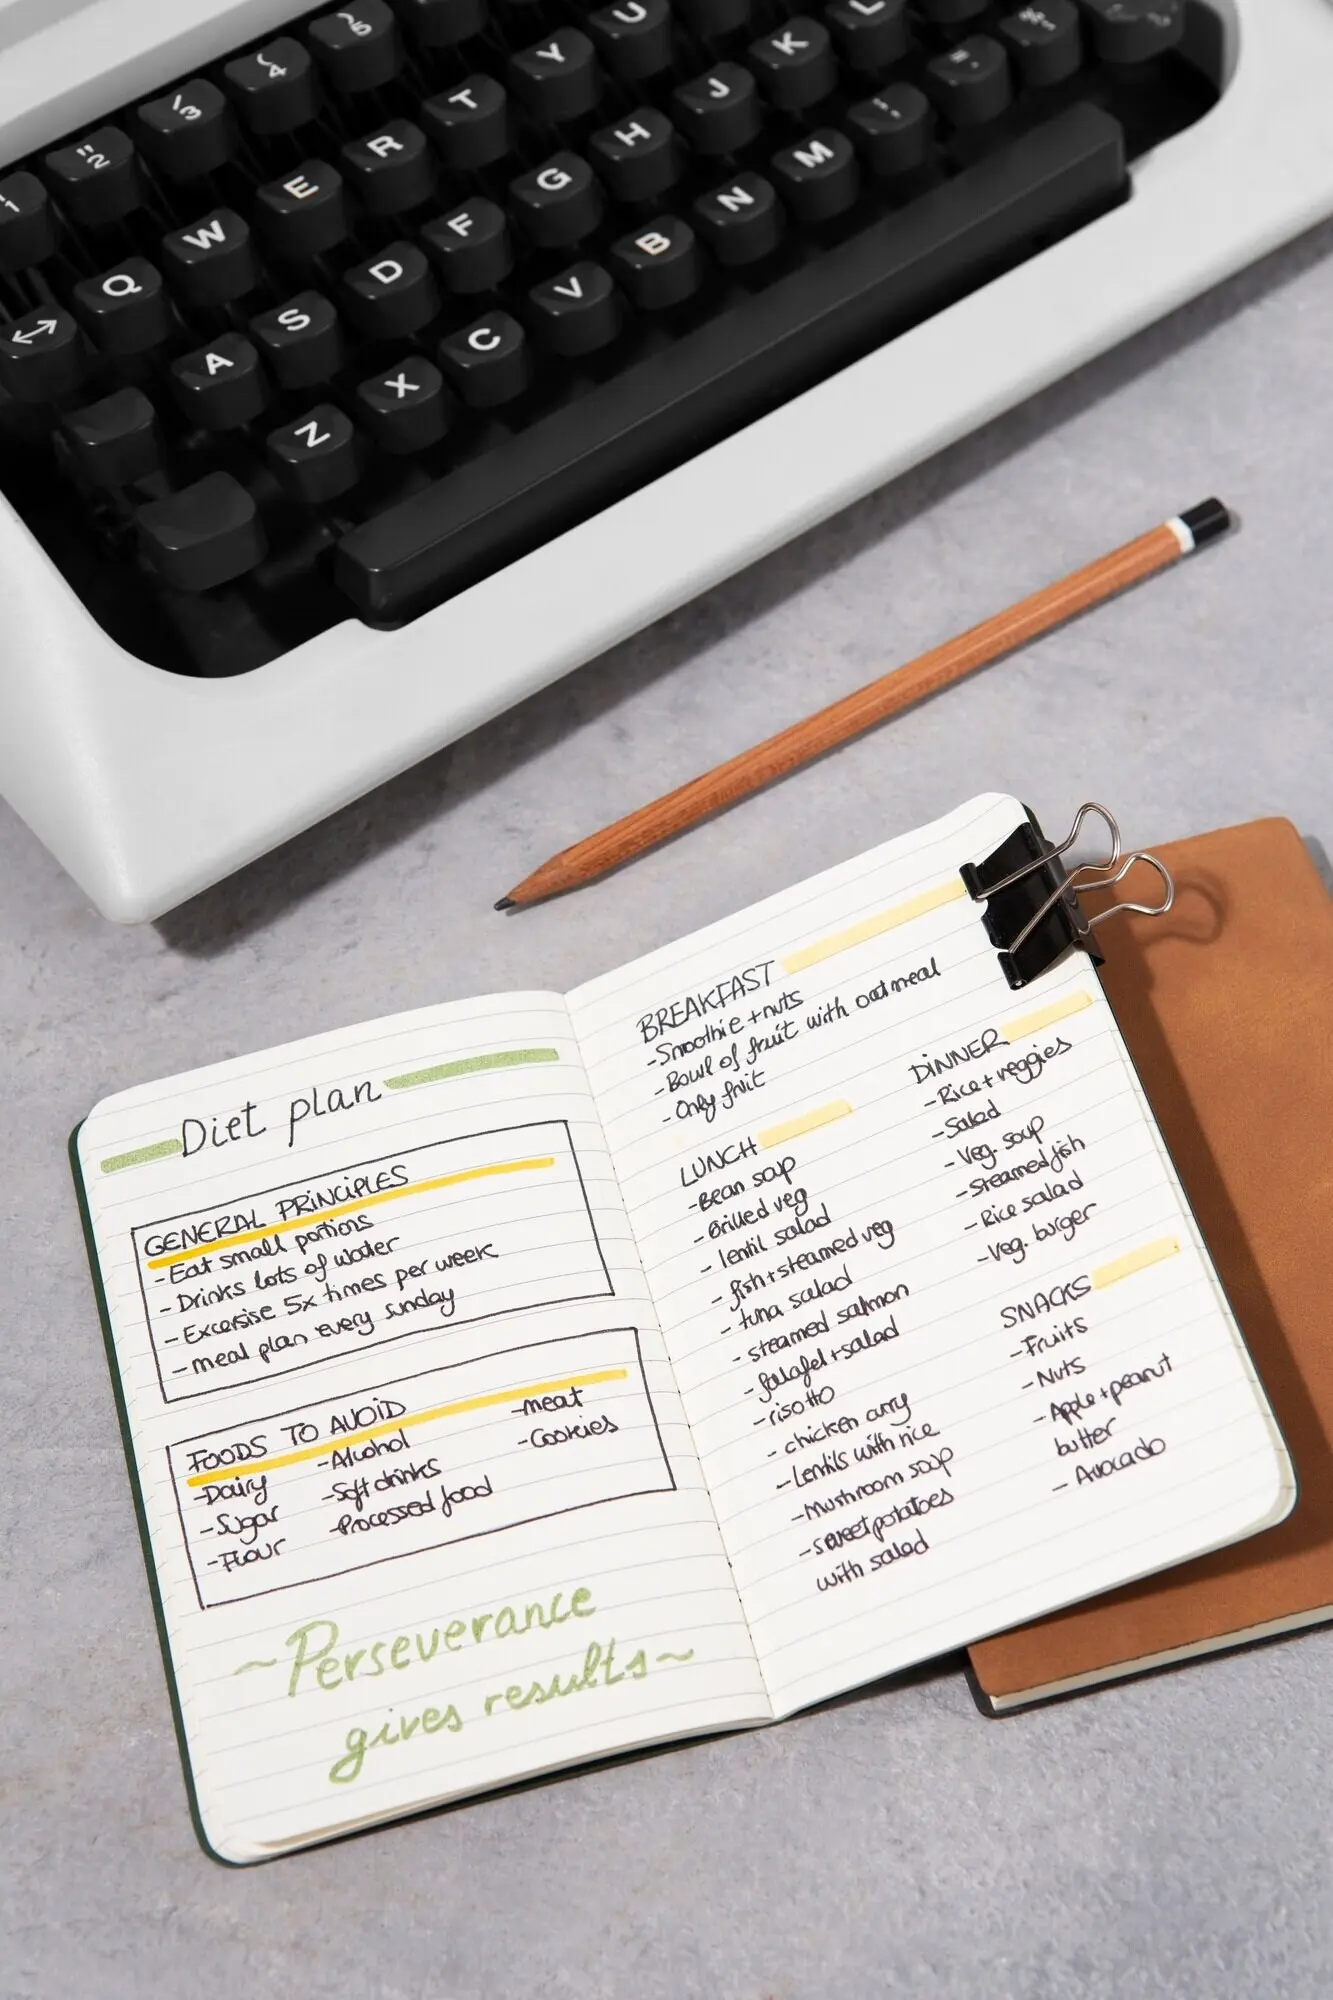 5
4
3
" 2
1
Q W E R T Y U
A S D F G H J K L
Z X C V B N M
Diet plan
GENERAL PRINCIPLES
-Eat small portions
-Drinks lots of water
-Excersise 5x times per week
-meal plan every sunday
FOODS TO AVOID
-Dairy
-Sugar
-Flour
-Alcohol
-Soft drinks
-Processed food
-meat
-Cookies
~Perseverance
gives results~
BREAKFAST
-Smoothie+nuts
-Bowl of fruit with oatmeal
-Only fruit
LUNCH
-Bean soup
-Grilled veg
-lentil salad
-fish+steamed veg
-tuna salad
-steamed salmon
-falafel+salad
-risotto
-chicken curry
-Lentils with rice
-mushroom soup
-sweet potatoes
with salad
DINNER
-Rice+veggies
-Salad
-Veg. soup
-Steamed fish
-Rice salad
-Veg. burger
SNACKS
-Fruits
-Nuts
-Apple+peanut
butter
-Avocado